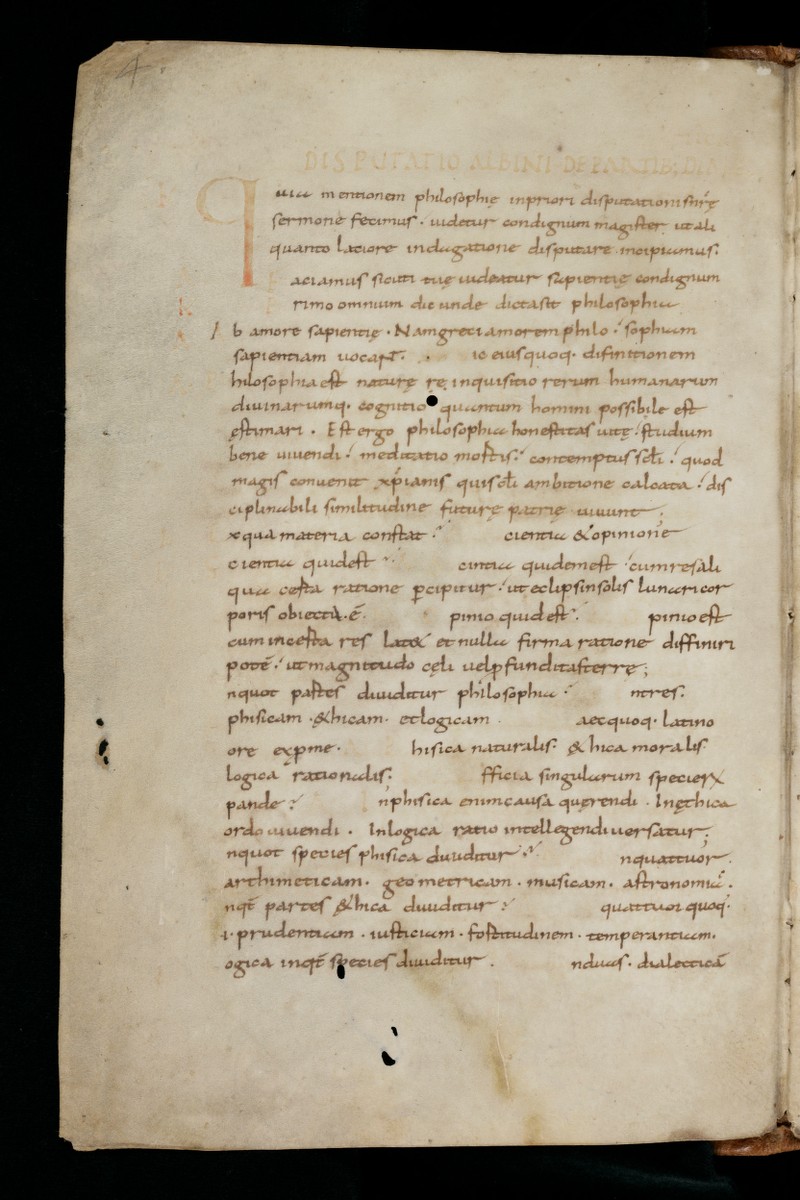 4
DISPUTATIO ALBINI DE PARTIB:
Q uia mentionem philosophię inpriori disputationis nrę
sermone fecimus · uidetur condignum magister ut ali
quanto latiore indagatione disputare incipiamus.
aciamus sicuti tuę uideatur sapientię condignum
rimo omnium dic unde dicta sit philosophia
b amore sapientię · Nam greci amorem philo sophiam
sapientiam uocant. ic eius quoq· difinitionem
hilosophia est naturę rerū inquisitio rerum humanarum
diuinarumq· cognitio quantum homini possibile est
ęstimari . Est ergo philosophia honestitas uitę studium
bene uiuendi meditatio mortis contemptus scłi quod
magis conuenit xp̄ianis qui scłi ambitione calcata dis
ciplinabili similitudine futurę patrię uiuunt.
xqua materia constat cientia &opinione
cientia quid est cintia quidem est cum res ali
qua certa ratione p̱cipitur ut eclipsin solis lunari cor
poris obiectā. ē. pinio quid est pinio est
cum incerta res lat& et nulla firma ratione diffiniri
potē ut magnitudo cęli uel p̱funditas terrę;
nquot partes diuiditur philosophia ntres.
phisicam · &hicam · et logicam aec quoq· latino
ore exp̱me · hisica naturalis &hica moralis
logica rationalis. fficia singularum specierꝝ
pande nphisica enim causa querendi . In ethica
ordo uiuendi . In logica ratio intellegendi uersatur.
nquot species phisica diuiditur nquattuor.
arthimeticam · geometricam · musicam · astronomiā .
nqt̄ partes &hica diuiditur quattuor quoq·
i· prudentiam · iusticiam · fortitudinem · temperantiam ·
ogica inqt̄ species diuiditur . nduas · dialecticā